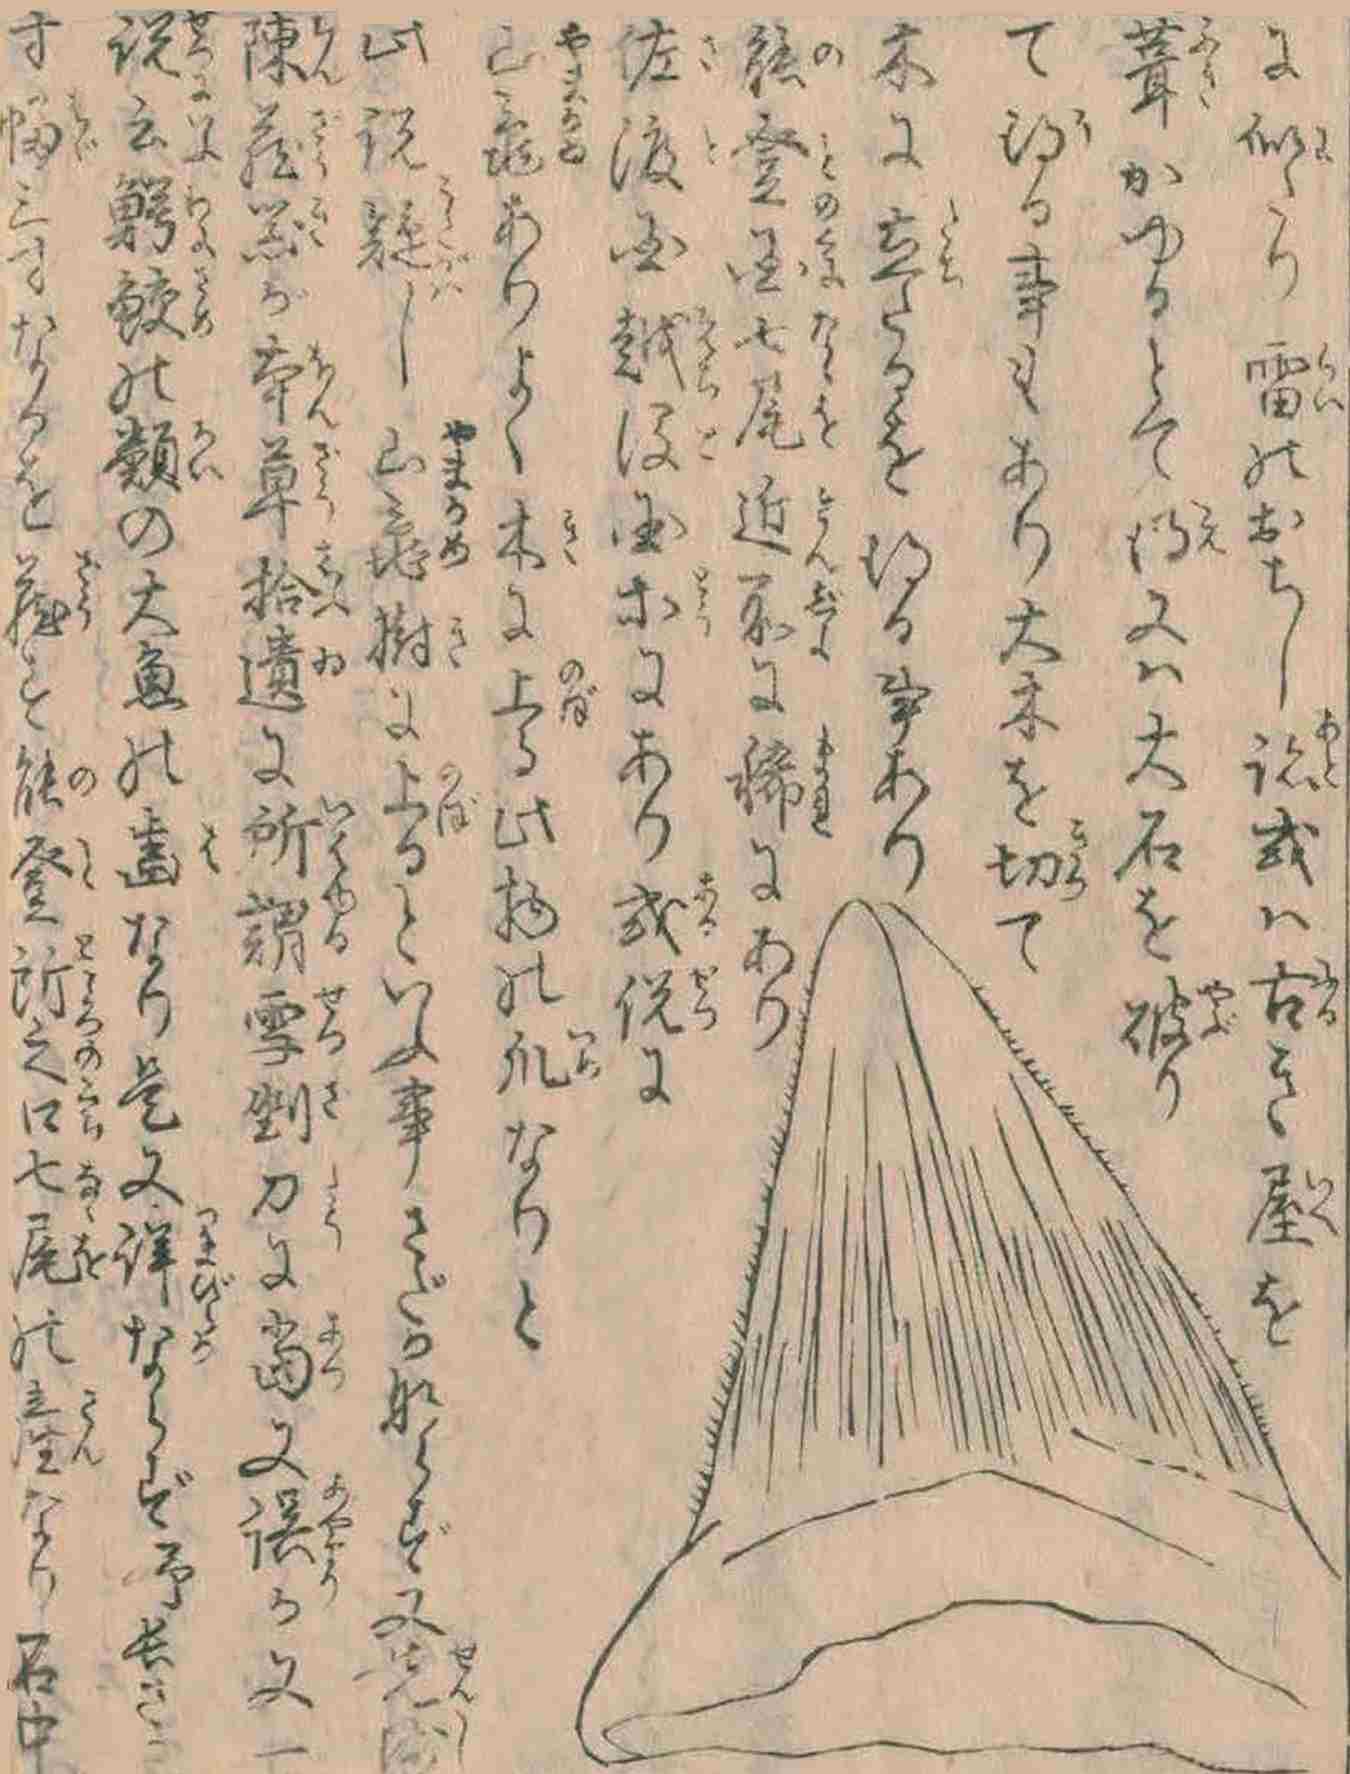 に似たり雷のおちし跡或ハ古き屋を
葺かゆるとて得又ハ大石を破り
て得る事もあり大木を切て
木に立たるを得る事あり
能登国七尾近所に稀にあり
佐渡国越後国等にあり或説に
山竜ありよく木に上る此物の爪なりと
此説疑ハし山竜樹に上るといふ事さだかならず又先
陳蔵器が本草拾遺に所謂霹靂刀に当又誤り又一
説云鰐鮫の類の大魚の歯なり是又詳ならず予長さ
寸幅三寸なるを蔵す能登所之口七尾の産なり石中